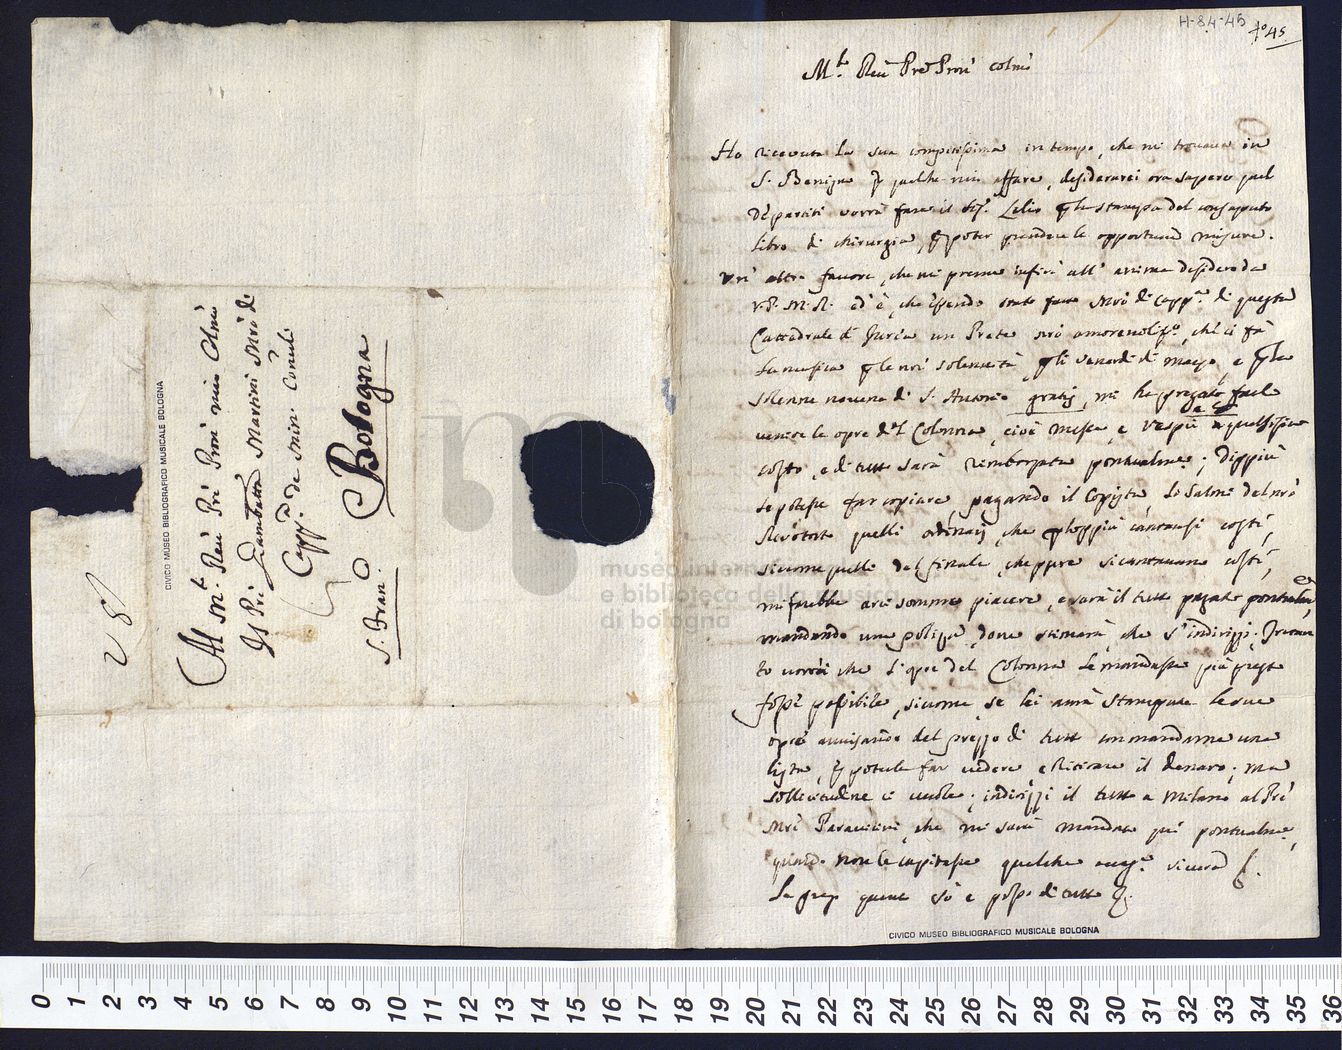 H-84-45
45
M.to Reu Pre Pron colmo
Ho riceuuta la sua compitissima in tempo, che mi trouaua in
S. Benigno p qualche mio affare, desiderarei ora sapere qual
de partiti uorrà fare il Sig.r Lelio p la stampa del consaputo
libro di chirurgia, p poter prendere le opportune misure.
Vn' altro fauore, che mi preme insin all' anima desidero da
V.P. M.R. ed è, che essendo stato fatto Mrõ di Capp.a di questa
Cattedrale d' Iurea un Prete nrõ amoreuoliss.o, che ci fà
la musica p le nrẽ solennità, p li venerdì di Marzo, e p la
solenne nouena di S. Antonio gratis, mi ha pregato farle
venire le opre del Colonna, cioè messe, e Vespri a qualsisia
costo, e di tutto sarà rimborsata pontualme; dippiù
se potesse far copiare, pagando il Copista, li Salmi del nrõ
quelli ordinarj, che p loppiù cantansi costì,
siccome quelle del finale, che pure si cantauano costì,
mi farebbe un sommo piacere, e sarà il tutto pagato pontualme
mandando una polizza, doue stimarà, che s' indirizzi. Intanto
uorrei che l' opre del Colonna le mandasse più presto
fosse possibile, siccome, se lei auesse stampate le sue
opre auuisando del prezzo di tutto con mandarne una
lista, p poterle far uedere, e ritirare il denaro; ma
sollecitudine ci uuole; indirizzi il tutto a Milano al Prẽ
Mrõ Parauicini, che mi sarà mandato quì pontualme,
quando non le capitasse qualche occas.e sicura
La prego quanto sò e posso di tutto
CIVICO MUSEO BIBLIOGRAFICO MUSICALE BOLOGNA
Al M.to Reu Prẽ Prõn mio Colmo
Il Prẽ Giambatta Martini Mrõ di
Capp.a de Min. Conu.li
Bologna
S. Fran.co
CIVICO MUSEO BIBLIOGRAFICO MUSICALE BOLOGNA
museo internazionale
e biblioteca della musica
di bologna
0 1 2 3 4 5 6 7 8 9 10 11 12 13 14 15 16 17 18 19 20 21 22 23 24 25 26 27 28 29 30 31 32 33 34 35 36